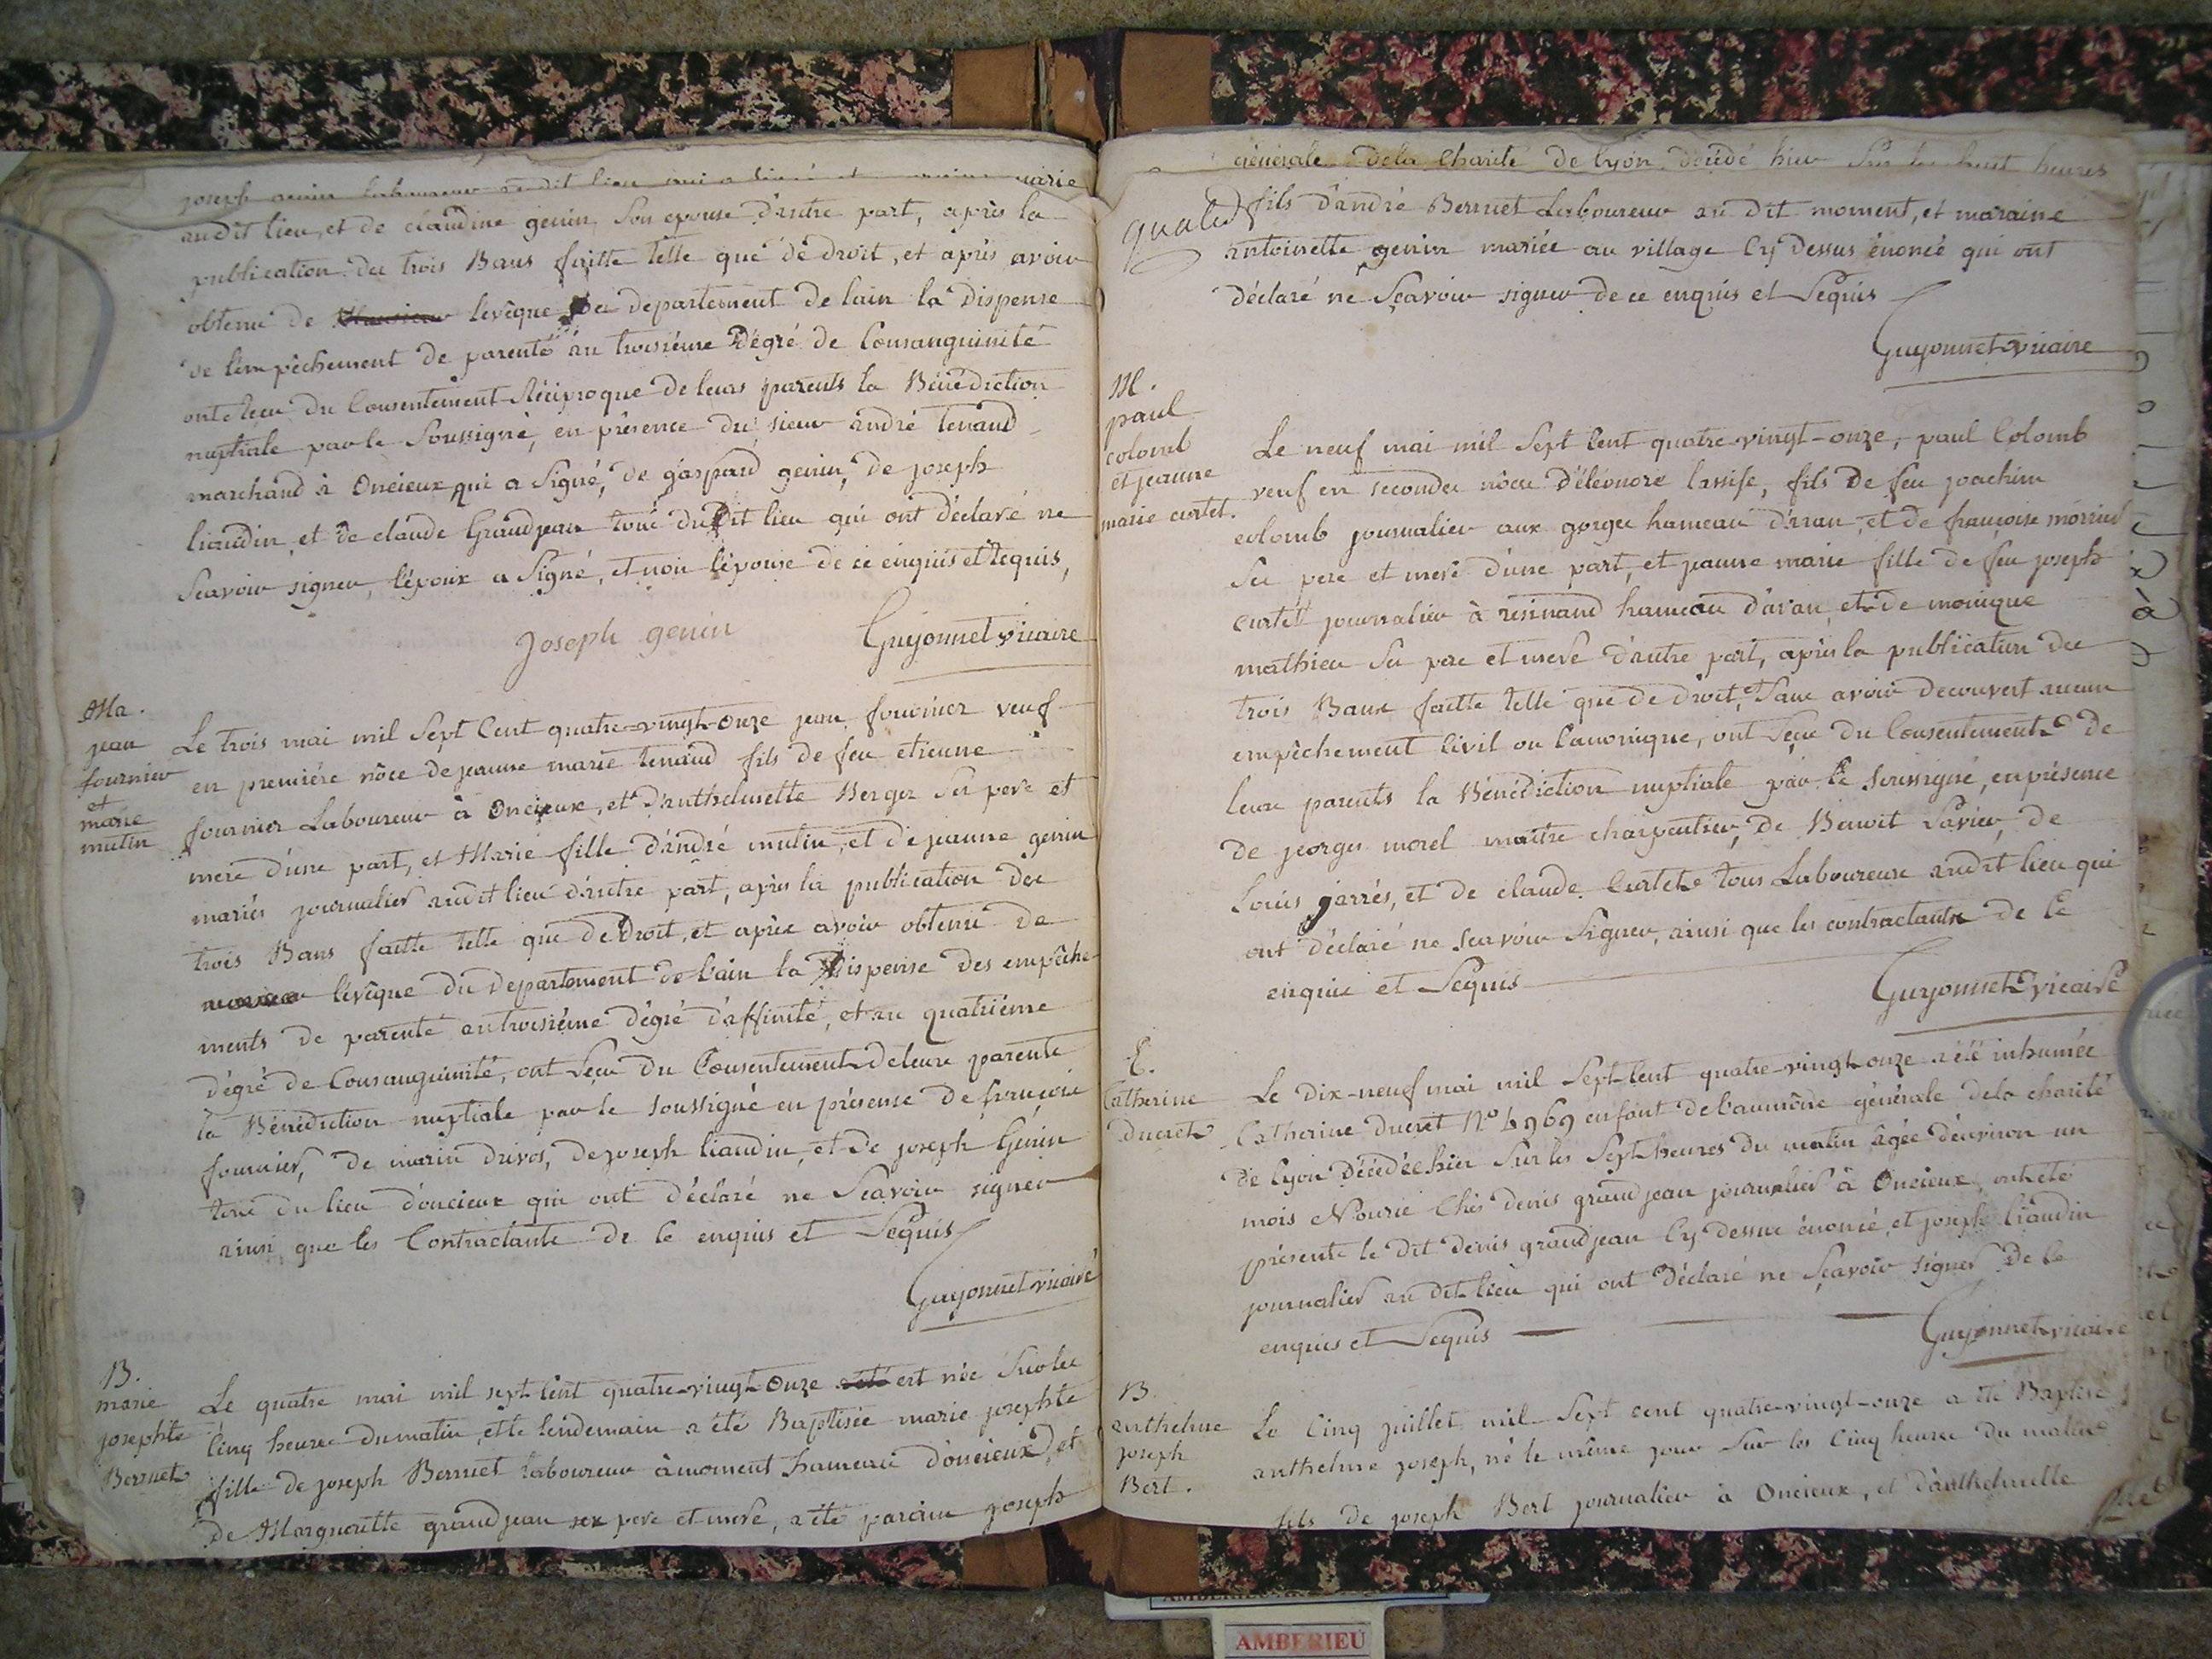 joseph genin laboureur au dit lieu qui a signé et marie
audit lieu, et de claudine genin, son epouse d'autre part, après la
publication des trois Bans faitte telle que de droit, et après avoir
obtenu de levêque du departement de lain la Dispense
de l'empêchement de parenté au troisiéme Dégré de Consanguinité
ont reçu du Consentement Réciproque de leurs parents la Bénédiction
nuptiale par le Soussigné, en présence du sieur andré tenand
marchand à Oncieux qui a Signé, de gaspard genin, de joseph
liaudin, et de claude Grandjean tous du Dit lieu qui ont déclaré ne
Scavoir signer, l'époux a Signé, et non l'épouse de ce enquis et Requis,
Joseph genin Guyonnet vicaire
Ma.
jean
fournier
et
marie
mutin
Le trois mai mil Sept Cent quatre-vingt-Onze jean fournier veuf
en premiére nôce de jeanne marie tenand fils de feu etienne
fournier Laboureur à Oncieux, et d'anthelmette Berger Ses pere et
mere d'une part, et Marie fille d'andré mutin, et de jeanne genin
mariés journalier audit lieu d'autre part, après la publication des
trois Bans faitte telle que de Droit, et après avoir obtenu de
lévêque du Departement de l'ain la Dispense des empêche-
ments de parenté au troisiéme dégré d'affinité, et au quatriéme
dégré de Consanguinité, ont Reçu du Consentement de leurs parents
la Bénédiction nuptiale par le soussigné en présence de françois
fournier, de marin de joseph liaudin, et de joseph Génin
tous du lieu d'oncieux qui ont déclaré ne Scavoir signer
ainsi que les Contractants de Ce enquis et Requis
Guyonnet vicaire
B.
marie
josephte
Bernet
Le quatre mai mil sept Cent quatre-vingt-Onze est née Sur les
Cinq heures du matin, et le lendemain a été Baptisée marie josephte
fille de joseph Bernet laboureur à moment hameau d'oncieux, et
De Marguerite grandjean ses pere et mere, a été parain joseph
générale de la Charité de lyon décédé hier Sur les huit heures
fils d'andré Bernet Laboureur au dit moment, et maraine
antoinette genin mariée au village Cy Dessus énoncé qui ont
déclaré ne Sçavoir signer de ce enquis et Requis
Guyonnet vicaire
M.
paul
colomb
et jeanne
marie curtet.
Le neuf mai mil Sept Cent quatre-vingt-onze, paul Colomb
veuf en secondes nôces d'éléonore lassise, fils de feu joachim
colomb journalier aux gorges hameau d'aran, et de françoise
Ses pere et mere d'une part, et jeanne marie fille de feu joseph
curtet journalier à résinand hameau d'aran, et de monique
mathieu Ses pere et mere d'autre part, après la publication des
trois Bans faitte telle que de droit, Sans avoir decouvert aucun
empêchement Civil ou Canonique, ont Reçu du Consentement de
leurs parents la Bénédiction nuptiale par le soussigné, en présence
de georges morel maitre charpentier, de Benoit Savier, de
Louis jarrés, et de claude Curtet tous Laboureurs audit lieu qui
ont déclaré ne scavoir Signer, ainsi que les contractants de Ce
enquis et Requis
Guyonnet vicaire
E.
Catherine
Ducret
Le dix-neuf mai mil Sept Cent quatre-vingt onze a été inhumée
Catherine Ducret N.º 4969 enfant de l'aumône générale de la charité
de lyon Décédée hier Sur les Sept heures du matin âgée d'environ un
mois Nourie Chés denis grandjean journalier à Oncieux, ont été
présents le dit denis grandjean Cy dessus énoncé, et joseph liaudin
journalier au dit lieu qui ont déclaré ne Sçavoir signer De Ce
enquis et Requis
Guyonnet vicaire
B.
anthelme
joseph
Bert.
Le Cinq juillet mil Sept cent quatre-vingt-onze a été Baptisé
anthelme joseph, né le même jour Sur les Cinq heures du matin
fils de joseph Bert journalier à Oncieux, et d'anthelmette
AMBERIEU